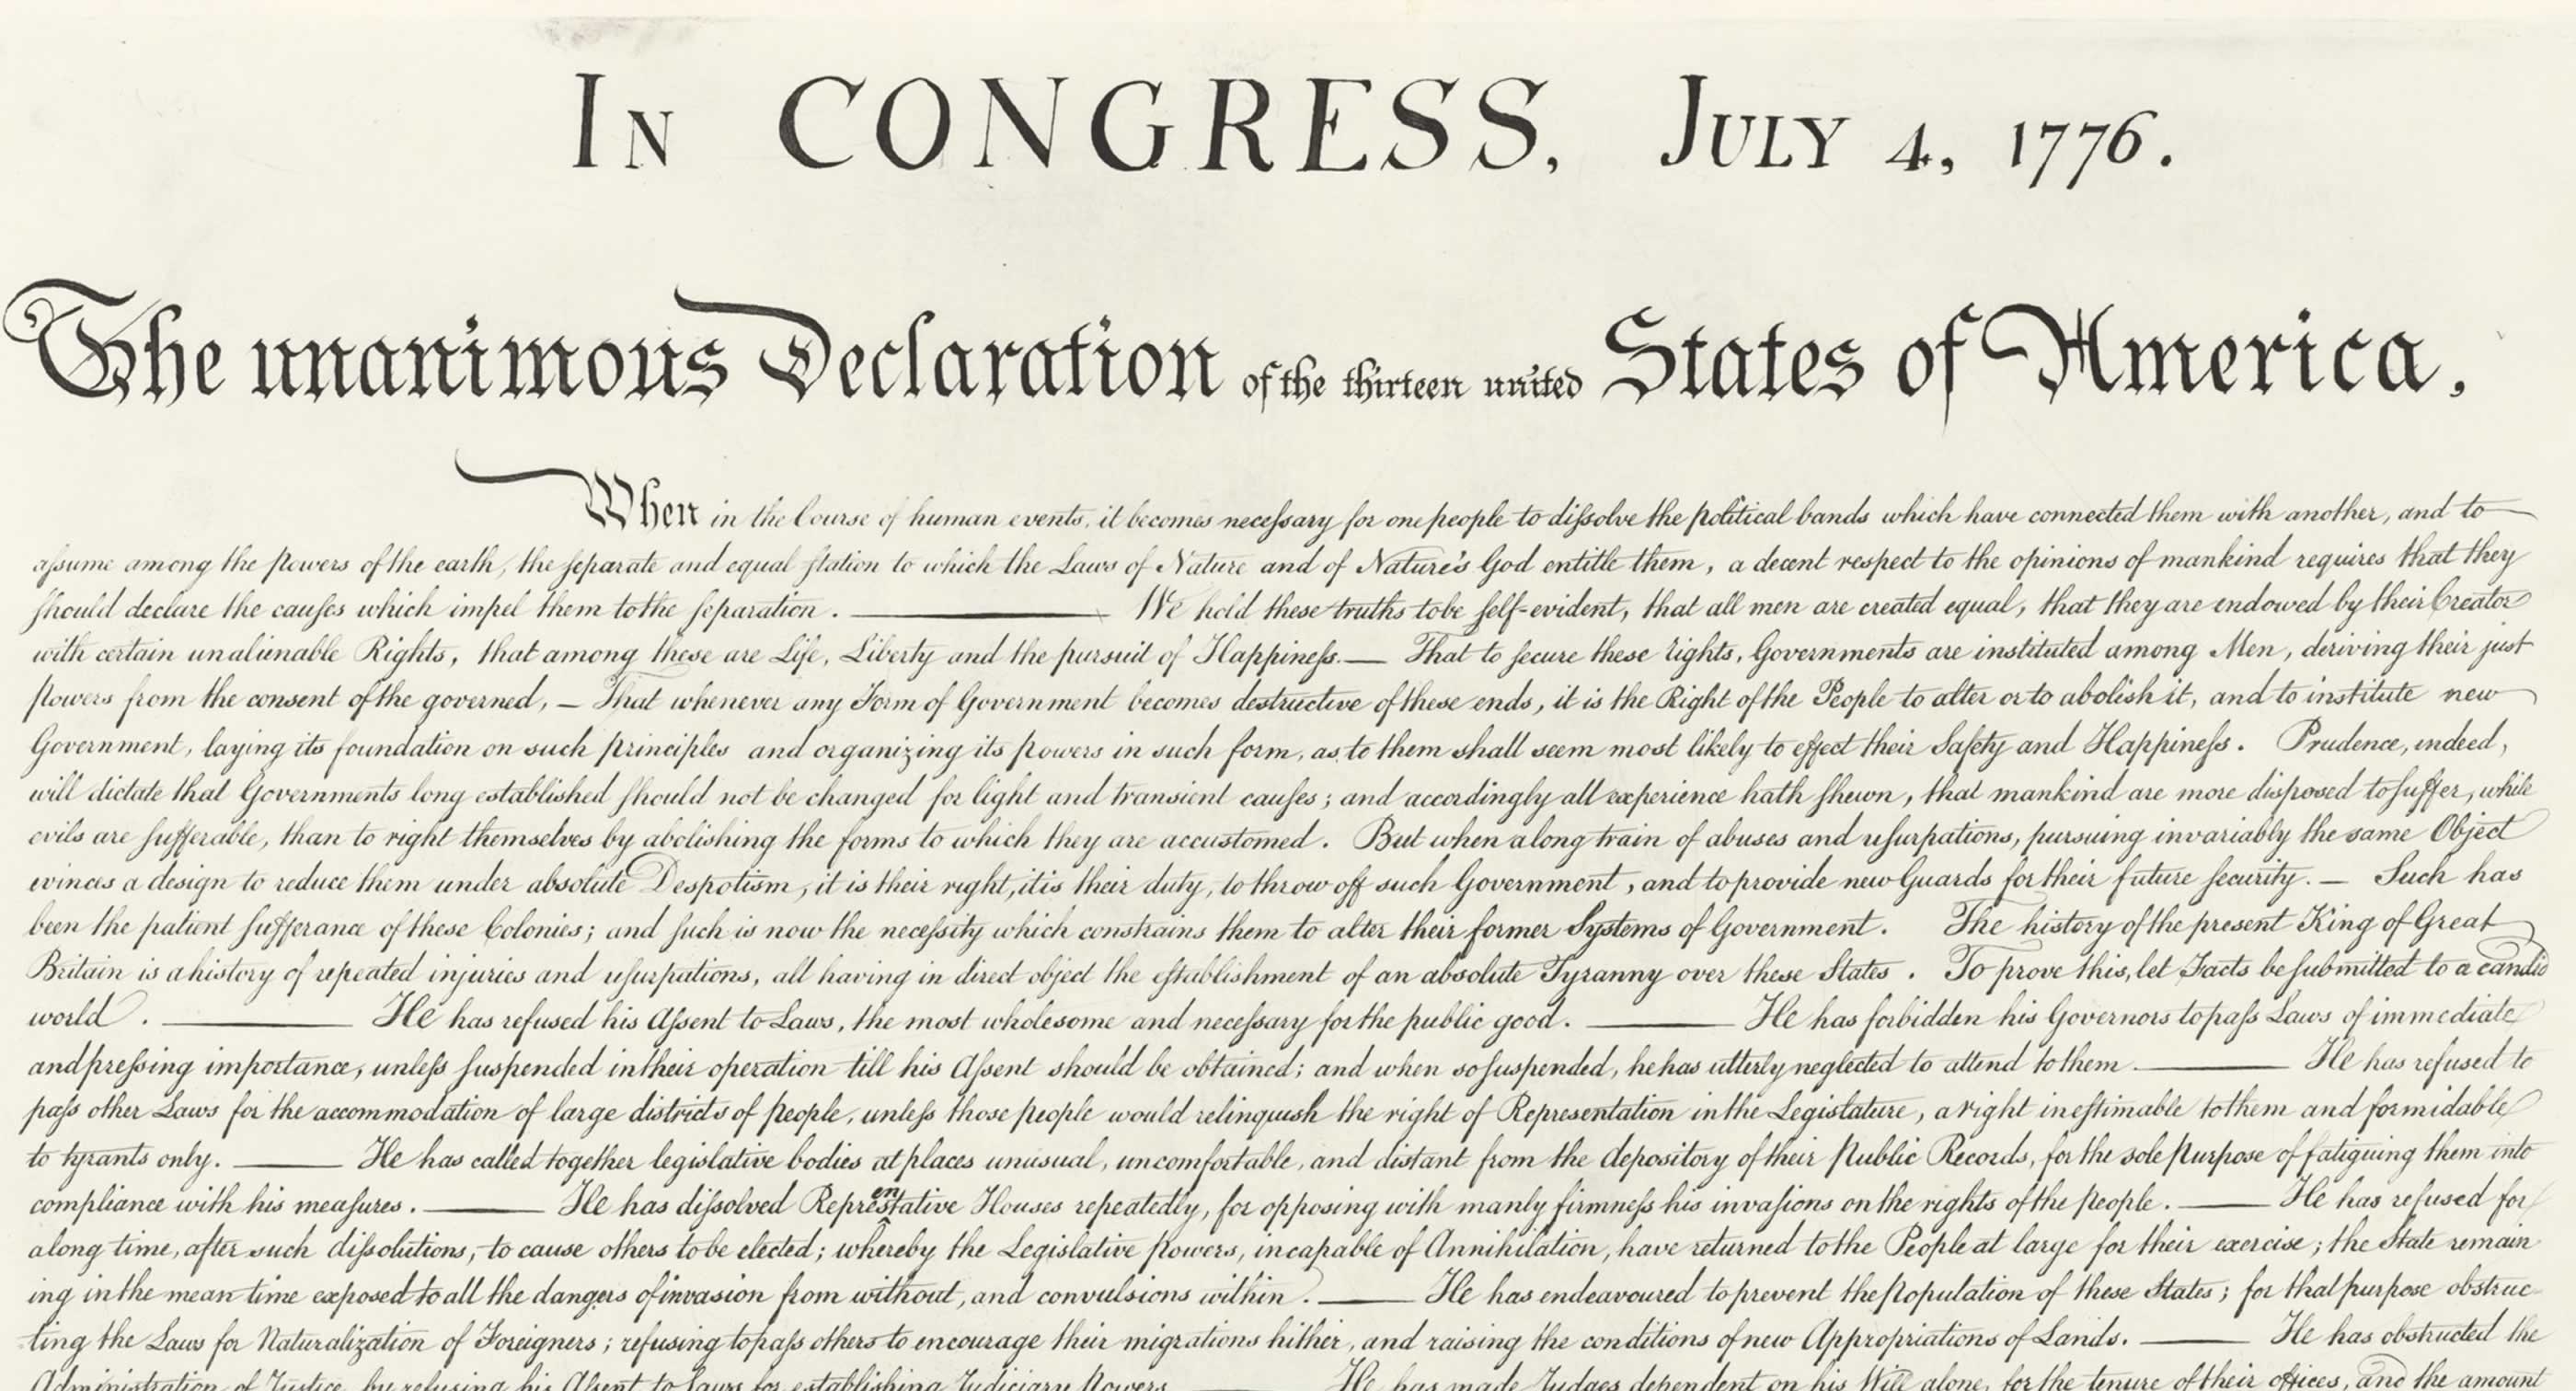 In CONGRESS, July 4, 1776.
The unanimous Declaration of the thirteen united States of America,
When in the Course of human events, it becomes necessary for one people to dissolve the political bands which have connected them with another, and to
assume among the powers of the earth, the separate and equal station to which the Laws of Nature and of Nature's God entitle them, a decent respect to the opinions of mankind requires that they
should declare the causes which impel them to the separation. ——— We hold these truths to be self-evident, that all men are created equal, that they are endowed by their Creator
with certain unalienable Rights, that among these are Life, Liberty and the pursuit of Happiness.— That to secure these rights, Governments are instituted among Men, deriving their just
powers from the consent of the governed, — That whenever any Form of Government becomes destructive of these ends, it is the Right of the People to alter or to abolish it, and to institute new
Government, laying its foundation on such principles and organizing its powers in such form, as to them shall seem most likely to effect their Safety and Happiness. Prudence, indeed,
will dictate that Governments long established should not be changed for light and transient causes; and accordingly all experience hath shewn, that mankind are more disposed to suffer, while
evils are sufferable, than to right themselves by abolishing the forms to which they are accustomed. But when a long train of abuses and usurpations, pursuing invariably the same Object
evinces a design to reduce them under absolute Despotism, it is their right, it is their duty, to throw off such Government, and to provide new Guards for their future security. — Such has
been the patient sufferance of these Colonies; and such is now the necessity which constrains them to alter their former Systems of Government. The history of the present King of Great
Britain is a history of repeated injuries and usurpations, all having in direct object the establishment of an absolute Tyranny over these States. To prove this, let Facts be submitted to a candid
world. ——— He has refused his Assent to Laws, the most wholesome and necessary for the public good. ——— He has forbidden his Governors to pass Laws of immediate
and pressing importance, unless suspended in their operation till his Assent should be obtained; and when so suspended, he has utterly neglected to attend to them. ——— He has refused to
pass other Laws for the accommodation of large districts of people, unless those people would relinquish the right of Representation in the Legislature, a right inestimable to them and formidable
to tyrants only. ——— He has called together legislative bodies at places unusual, uncomfortable, and distant from the depository of their Public Records, for the sole purpose of fatiguing them into
compliance with his measures. ——— He has dissolved Representative Houses repeatedly, for opposing with manly firmness his invasions on the rights of the people. ——— He has refused for
a long time, after such dissolutions, to cause others to be elected; whereby the Legislative powers, incapable of Annihilation, have returned to the People at large for their exercise; the State remain
ing in the mean time exposed to all the dangers of invasion from without, and convulsions within. ——— He has endeavoured to prevent the population of these States; for that purpose obstruc
ting the Laws for Naturalization of Foreigners; refusing to pass others to encourage their migrations hither, and raising the conditions of new Appropriations of Lands. ——— He has obstructed the
Administration of Justice, by refusing his Assent to Laws for establishing Judiciary Powers. ——— He has made Judges dependent on his Will alone, for the tenure of their offices, and the amount